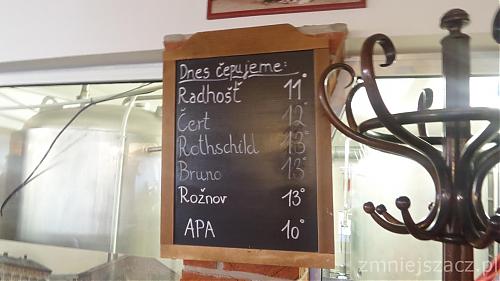 Dnes čepujeme:
Radhošť 11°
Čert 12°
Rothschild 13°
Bruno 13°
Rožnov 13°
APA 10°
zmniejszacz.pl